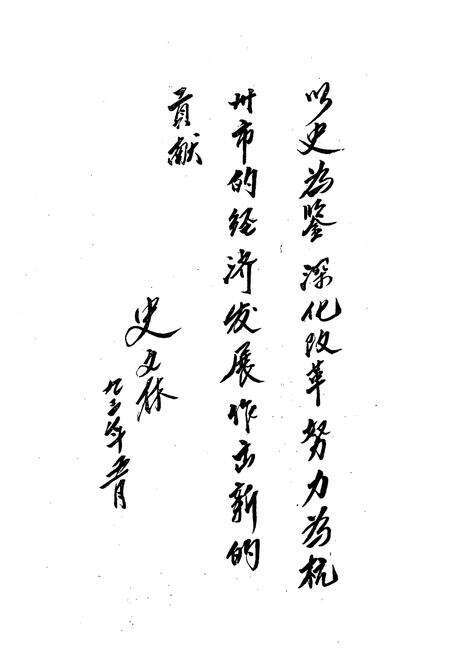 以史为鉴深化改革努力为杭
州市的经济发展作出新的
贡献
史文林
九三年五月